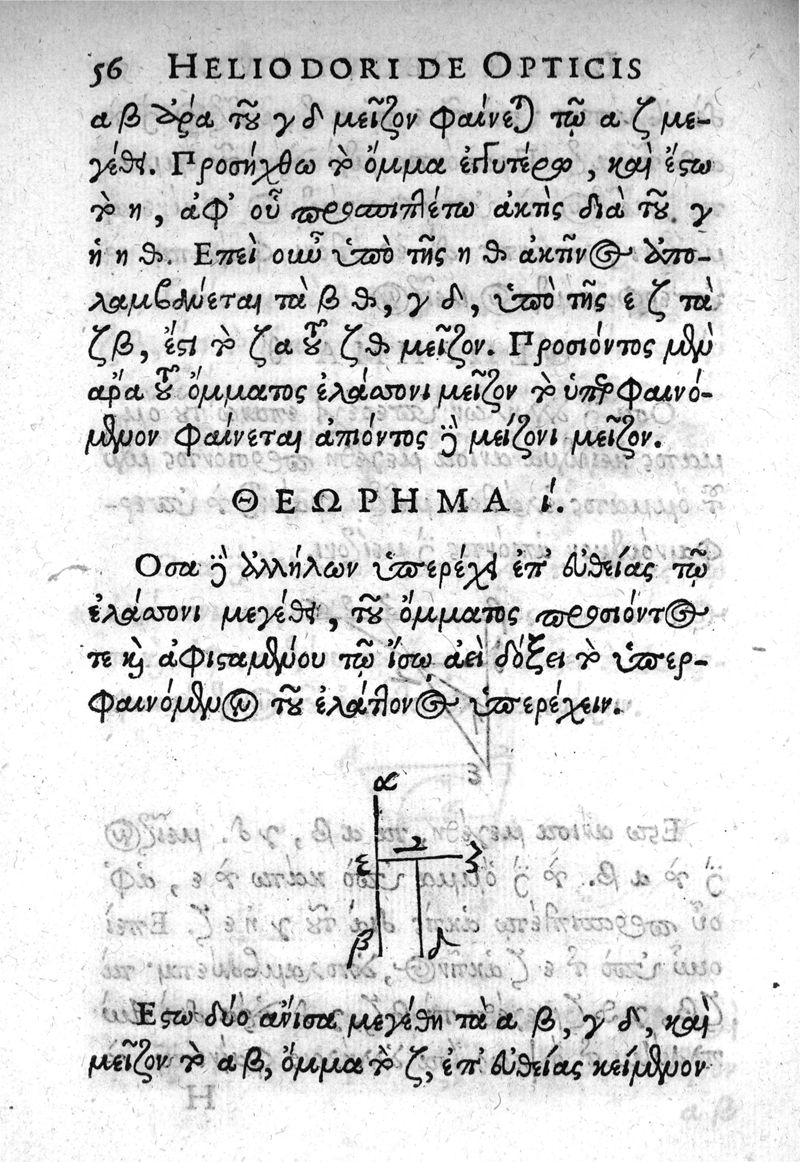 56 HELIODORI DE OPTICIS
α β ἄρα τοῦ γ δ μεῖζον φαίνεται τῷ α ζ με-
γέθει. Προσήχθω τὸ ὄμμα ἐγγυτέρω, καὶ ἔστω
τὸ η, ἀφ' οὗ προσπιπτέτω ἀκτὶς διὰ τοῦ γ
ἡ η θ. Επεὶ οὖν ὑπὸ τῆς η θ ἀκτῖνος ἀπο-
λαμβάνεται τὰ β θ, γ δ, ὑπὸ τῆς ε ζ τὰ
ζ β, ἔστι τὸ ζ α τοῦ ζ θ μεῖζον. Προσιόντος μὲν
ἄρα τοῦ ὄμματος ἐλάσσονι μεῖζον τὸ ὑπερφαινό-
μενον φαίνεται ἀπιόντος δὲ μείζονι μεῖζον.
ΘΕΩΡΗΜΑ ί.
Οσα δὲ ἀλλήλων ὑπερέχει ἐπ' εὐθείας τῷ
ἐλάσσονι μεγέθει, τοῦ ὄμματος προσιόντος
τε καὶ ἀφισταμένου τῷ ἴσῳ ἀεὶ δόξει τὸ ὑπερ-
φαινόμενον τοῦ ἐλάττονος ὑπερέχειν.
α
ε γ ζ
β δ
Εστω δύο ἄνισα μεγέθη τὰ α β, γ δ, καὶ
μεῖζον τὸ α β, ὄμμα τὸ ζ, ἐπ' εὐθείας κείμενον